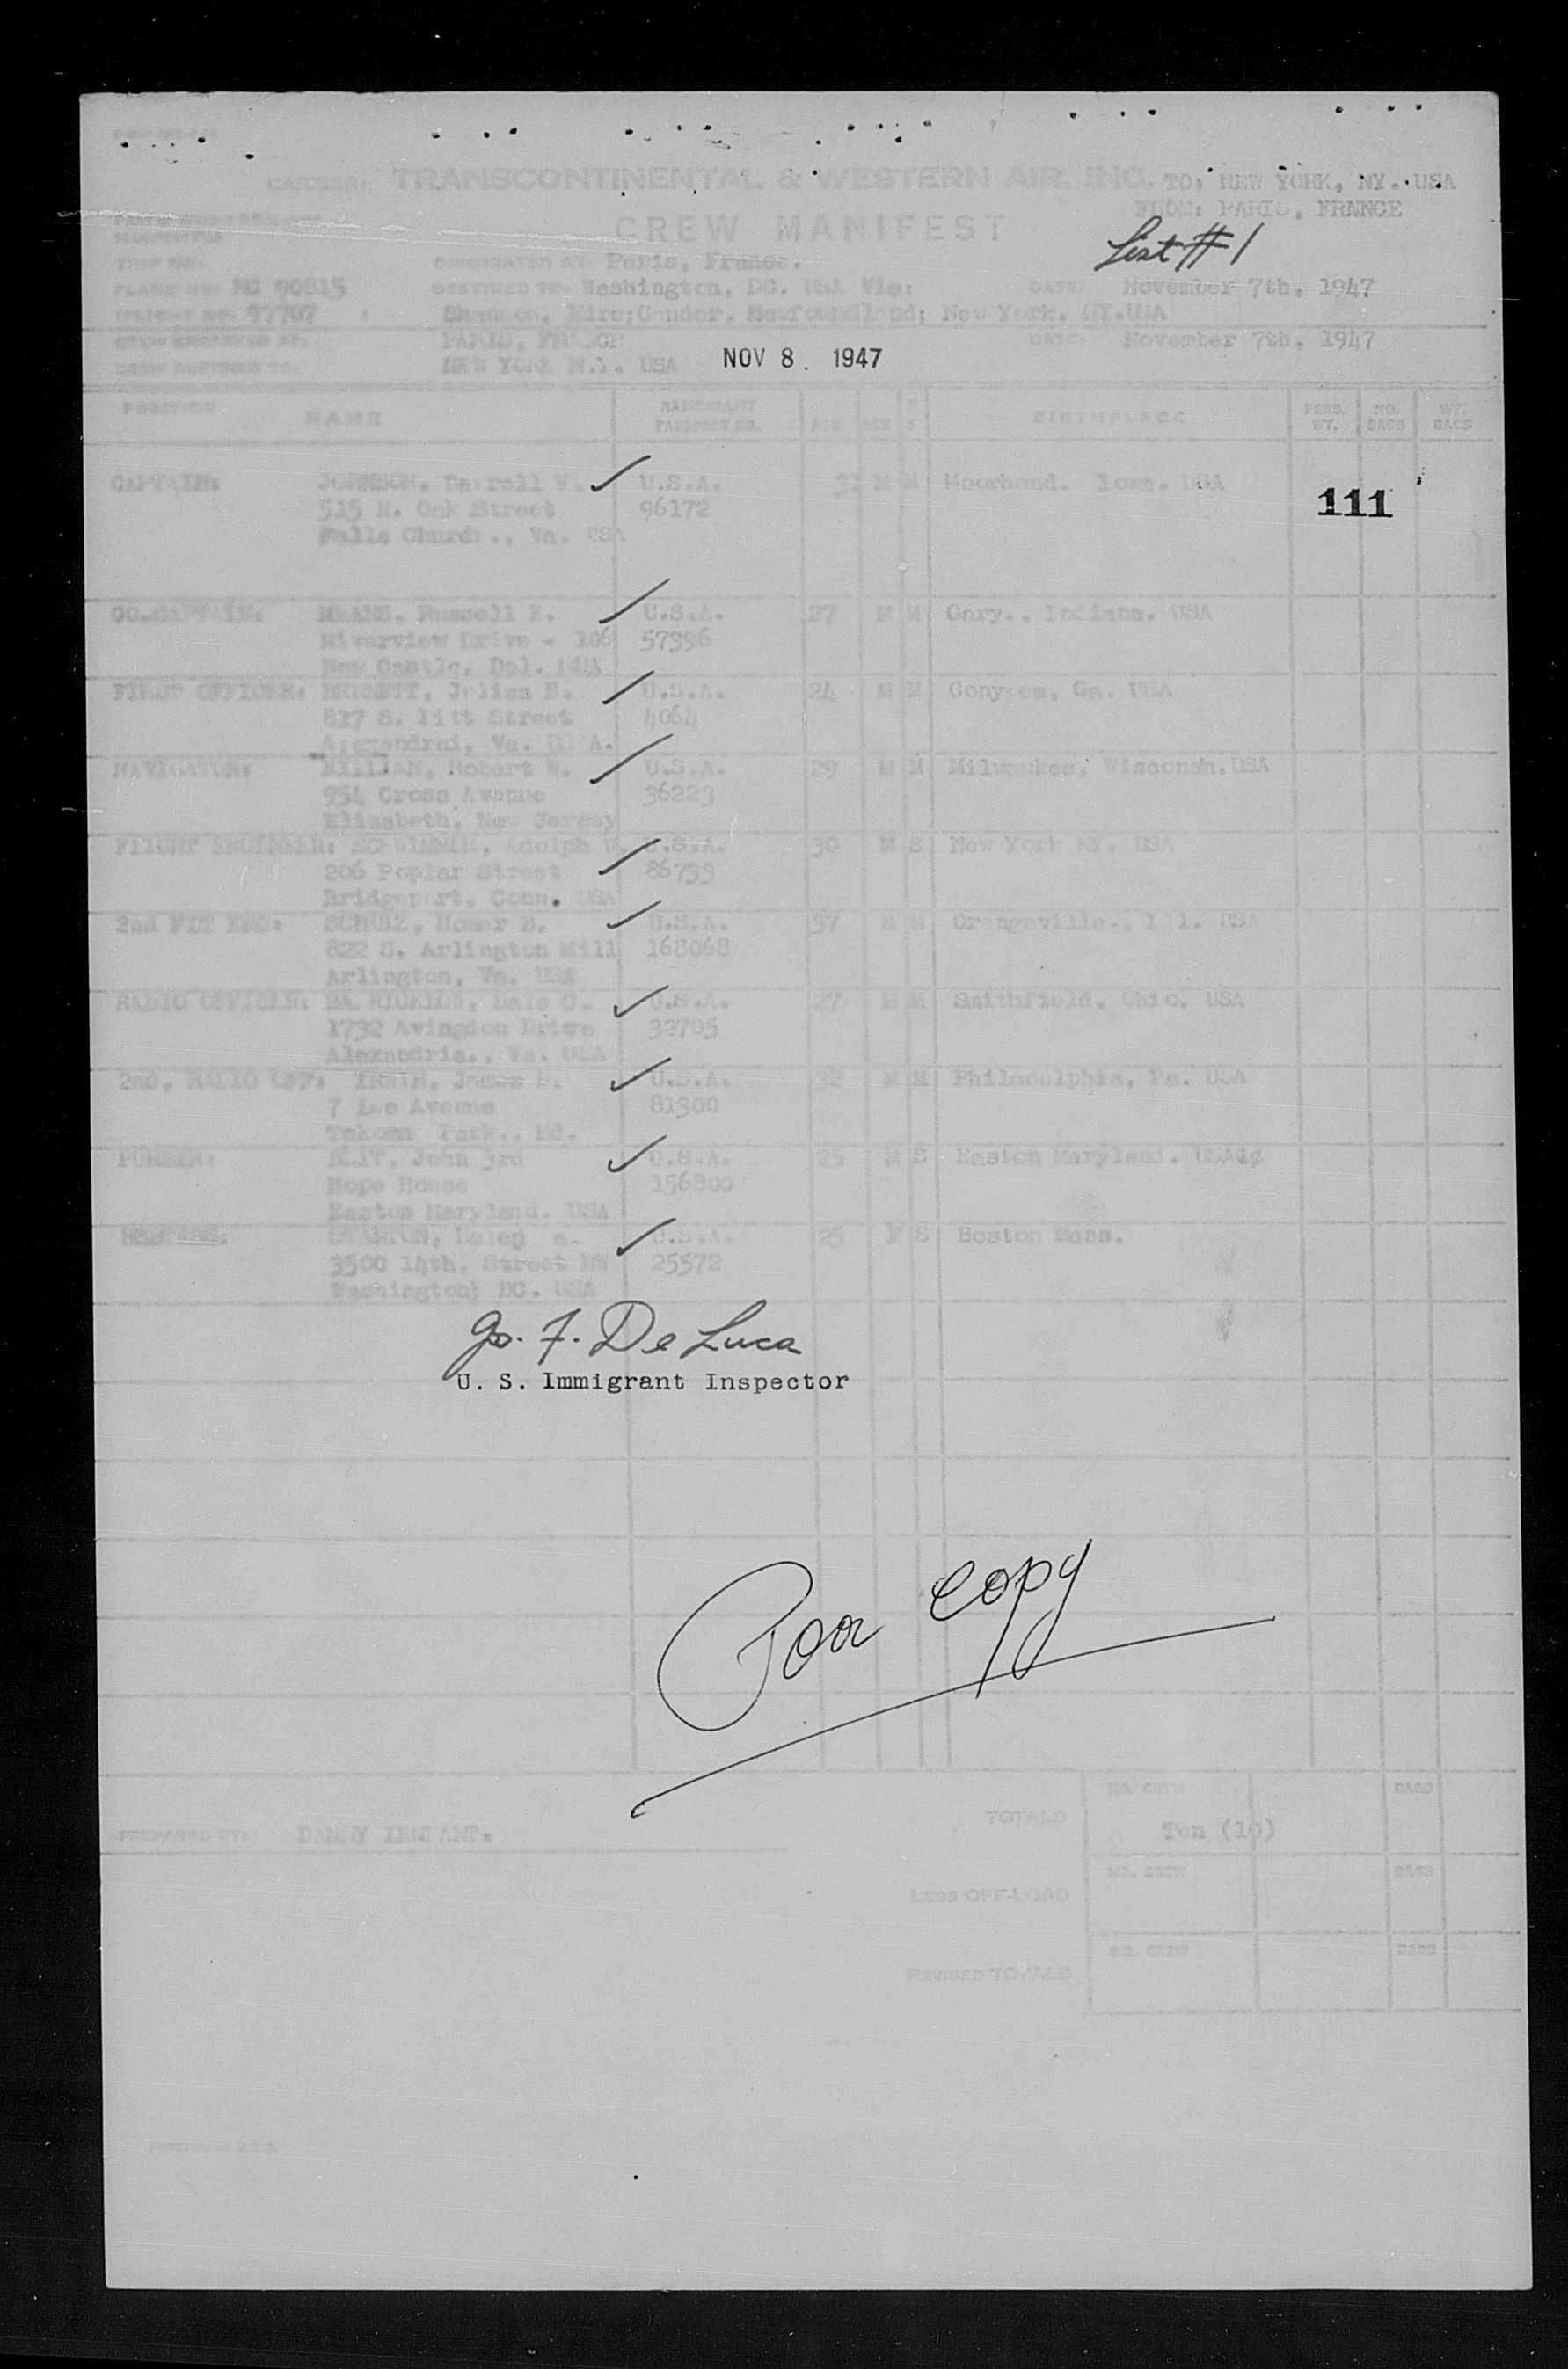 CARRIER: TRANSCONTINENTAL & WESTERN AIR, INC. TO: NEW YORK, NY. USA
FROM: PARIS, FRANCE
CREW MANIFEST
List #1
TRIP NO. ORIGINATED AT: Paris, France.
PLANE NO. NC 90815 DESTINED TO: Washington, DC. USA Via: DATE: November 7th, 1947
97707 Shannon, Eire; Gander, Newfoundland; New York, NY. USA
PARIS, DATE: November 7th, 1947
NEW YORK N.Y. USA NOV 8. 1947
POSITION NAME NATIONALITY PASSPORT NO. AGE SEX BIRTHPLACE PERS. WT. NO. BAGS WT. BAGS
CAPTAIN: JOHNSON, Darroll V. ✓ U.S.A. M M Moorhead. Iowa. USA
515 N. Oak Street 96172 111
Falls Church., Va. USA
CO-CAPTAIN: MEANS, Russell E. ✓ U.S.A. 27 M M Gary., Indiana. USA
Riverview Drive - 106 57396
New Castle, Del. USA
FIRST OFFICER: Julian B. ✓ U.S.A. 24 M M Conyres, Ga. USA
817 S. Pitt Street 4064
Va.
NAVIGATOR: Robert W. ✓ U.S.A. 29 M M Milwaukee, Wisconsn. USA
954 Cross Avenue 36223
Elizabeth, New Jersey
FLIGHT ENGINEER: Adolph ✓ U.S.A. 30 M S New York NY. USA
206 Poplar Street 86739
Bridgeport, Conn. USA
2nd FLT ENG: SCHULZ, Homer B. ✓ U.S.A. 37 M M Orangeville., Ill. USA
822 S. Arlington Mill 168068
Arlington, Va. USA
RADIO OFFICER: Dale ✓ U.S.A. 27 M M Smithfield. Ohio. USA
1732 Avingdon Drive 32705
Alexandria., Va. USA
2nd, RADIO OFF: IRWIN, James ✓ U.S.A. 32 M M Philadelphia, Pa. USA
7 Lee Avenue 81300
Takoma Park., Md.
PURSER: John 3rd ✓ U.S.A. 25 M S Easton Maryland. USA
Hope House 156800
Easton Maryland. USA
HOSTESS: Helen ✓ U.S.A. 25 F S Boston Mass.
3500 14th, Street NW 25572
Washington, DC. USA
Jo. F. De Luca
U. S. Immigrant Inspector
Poor copy
NO. CREW BAGS
TOTALS Ten (10)
PREPARED BY: DANNY
NO. CREW BAGS
LESS OFF-LOAD
NO. CREW BAGS
REVISED TOTALS
PRINTED IN U.S.A.